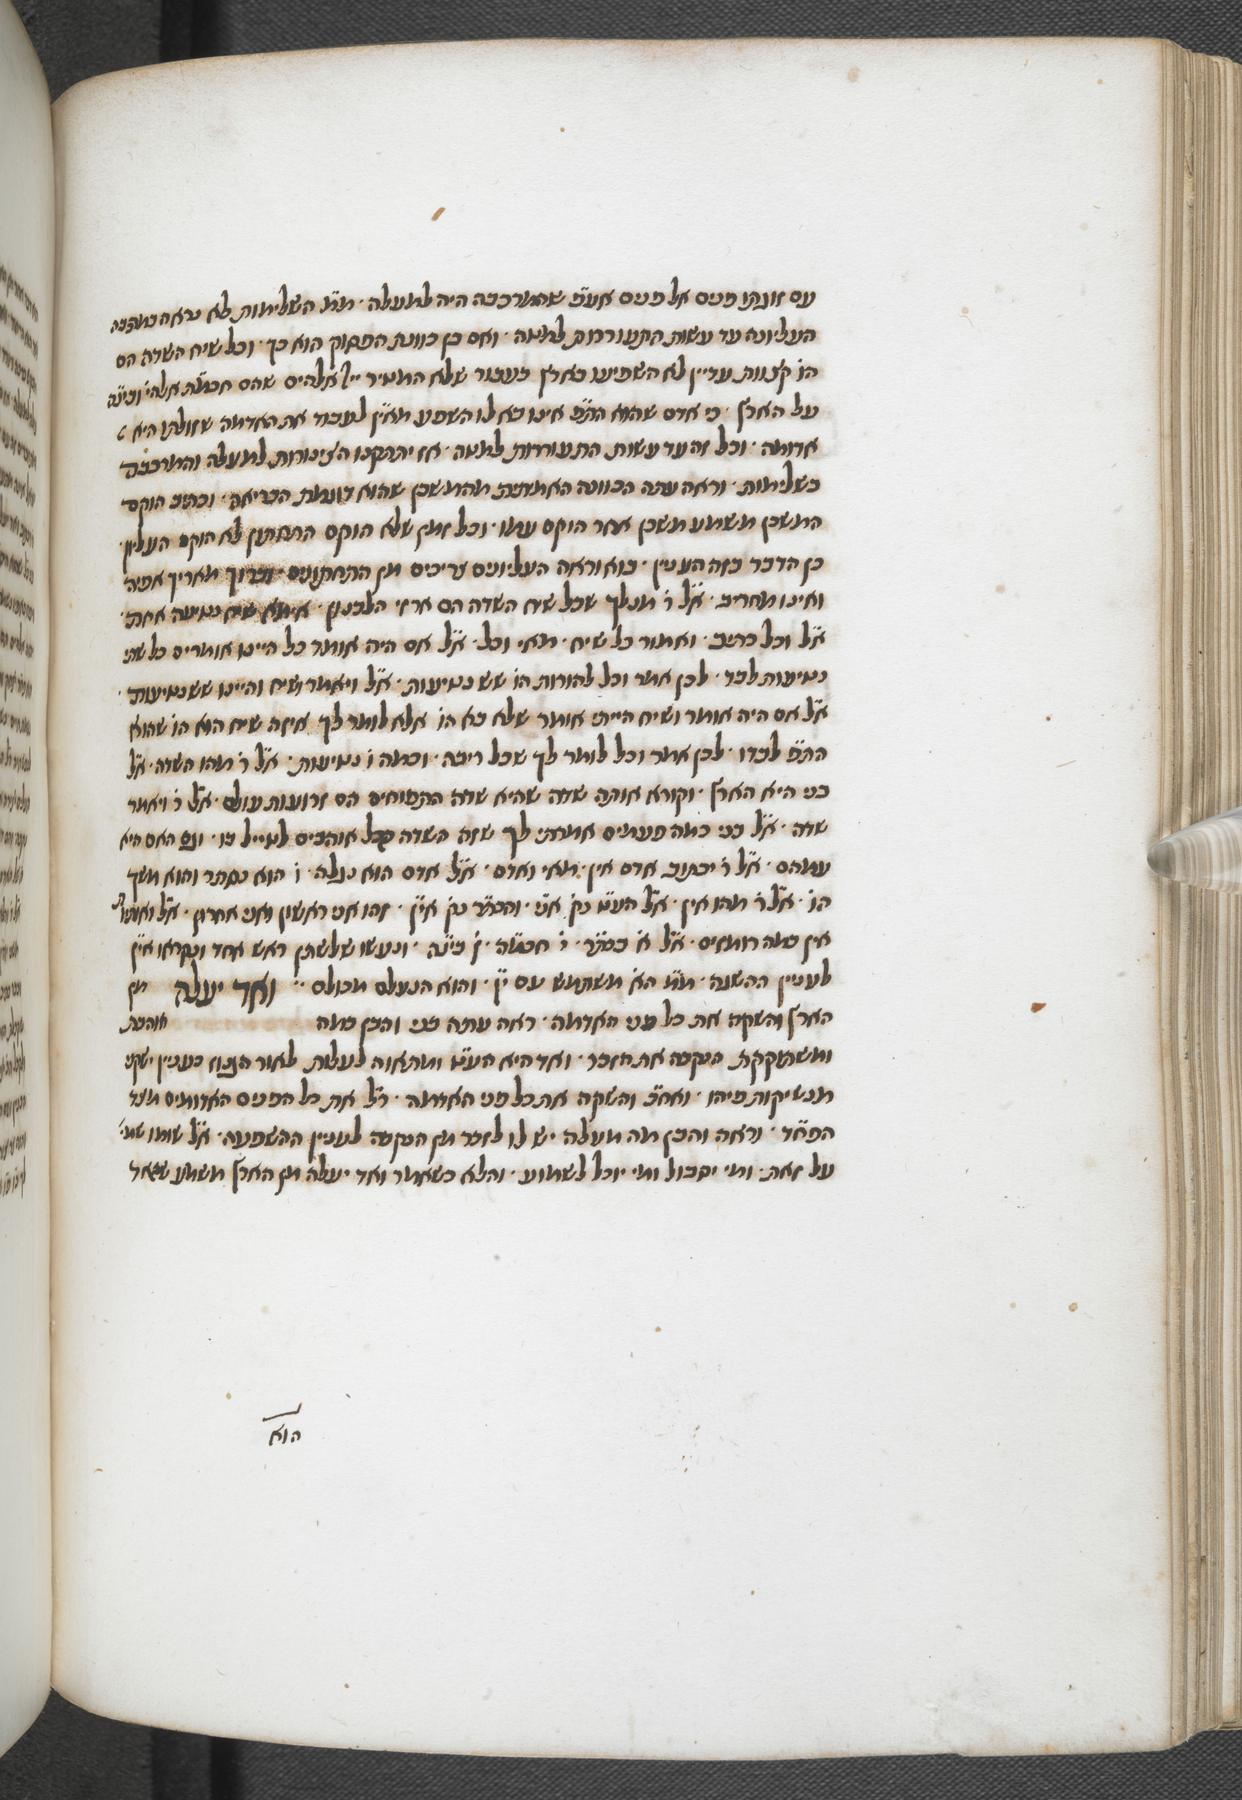 עם זונתו פנים אל פנים אעפ שהמרכבה היה למעלה · מ״מ השלימות לא נראה במרכבה
העליונה עד עשות התעוררות למטה · ואם כן כוונת הפסוק הוא כך · וכל שיח השדה הם
הו׳ קצוות עדיין לא השפיעו בארץ בעבור שלא המטיר ייי אלהים שהם חכמה אלהי׳ ובינה
על הארץ · כי אדם שהוא הת״ת אינו בא לו השפע מאין לעבוד את האדמה שזולתו היא
אדומה · וכל זה עד עשות התעוררות למטה · אז יתתקנו הצינורות למעלה והמרכבה
בשלימות · וראה עתה הכוונה האמתית מהמשכן שהוא דוגמת הבריאה · וכתיב הוקם
המשכן משמע משכן אחר הוקם עמו · וכל זמן שלא הוקם התחתון לא הוקם העליון ·
כן הדבר בזה העניין · בוא וראה העליונים צריכים מן התחתונים · וברוך מאריך אפיה
ואינו מחריב · א״ל ר׳ מנלך שכל שיח השדה הם ארזי הלבנון · אימא שיח נטיעה אחת ·
א״ל וכל כתיב · ואמור כל שיח · מאי וכל · א״ל אם היה אומר כל היינו אומרים כל שתי
נטיעות לבד · לכן אמר וכל להורות הו׳ שש נטיעות · א״ל ויאמר ושיח והיינו שש נטיעות ·
א״ל אם היה אומר ושיח הייתי אומר שלא בא הו׳ אלא לומר לך איזה שיח הוא הו׳ שהוא
הת״ת לבדו · לכן אמר וכל לומר לך שכל ריבה · וכמה ו׳ נטיעות · א״ל ר׳ מהו השדה · א״ל
בני היא הארץ · וקורא אותה שדה שהיא שדה התפוחים הם זרועות עולם · א״ל ר׳ ויאמר
שדה · א״ל בני כמה פעמים אמרתי לך שזה השדה הכל אוהבים לטייל בו · וגם האם היא
עמהם · א״ל ר׳ יכתוב אדם אין · מאי ואדם · א״ל אדם הוא נגלה · ו׳ הוא נסתר והוא משך
הו׳ · א״ל ר׳ מהו אין · א״ל העט׳ נק׳ אני · והכתר נק׳ אין · זהו אני ראשון ואני אחרון · א״ל ואותיו׳
אין כמה רומזים · א״ל א׳ כתר · י׳ חכמה · ן׳ בינה · ונעשו שלשתן ראש אחד ונקראו אין
לעניין ההשגה · מ״מ הא׳ משתמש עם י״ן · והוא הנעלם מכולם ·· ואד יעלה מן
הארץ והשקה את כל פני האדמה · ראה עתה בני והבן כמה אוהבת
ומשתקקת הנקבה את הזכר · ואד היא העט׳ ומתאוה לעלות לאור הגנוז כעניין ישקני
מנשיקות פיהו · ואח״כ והשקה את כל פני האדמה · ר״ל את כל הפנים האדומים מצד
הפחד · וראה והבן מה מעלה יש לו לזכר מן הנקבה לעניין ההשפעה · א״ל שומו שמי׳
על זאת · ומי יסבול ומי יוכל לשמוע · והלא כשאמר ואד יעלה מן הארץ משמע שאד
הוא